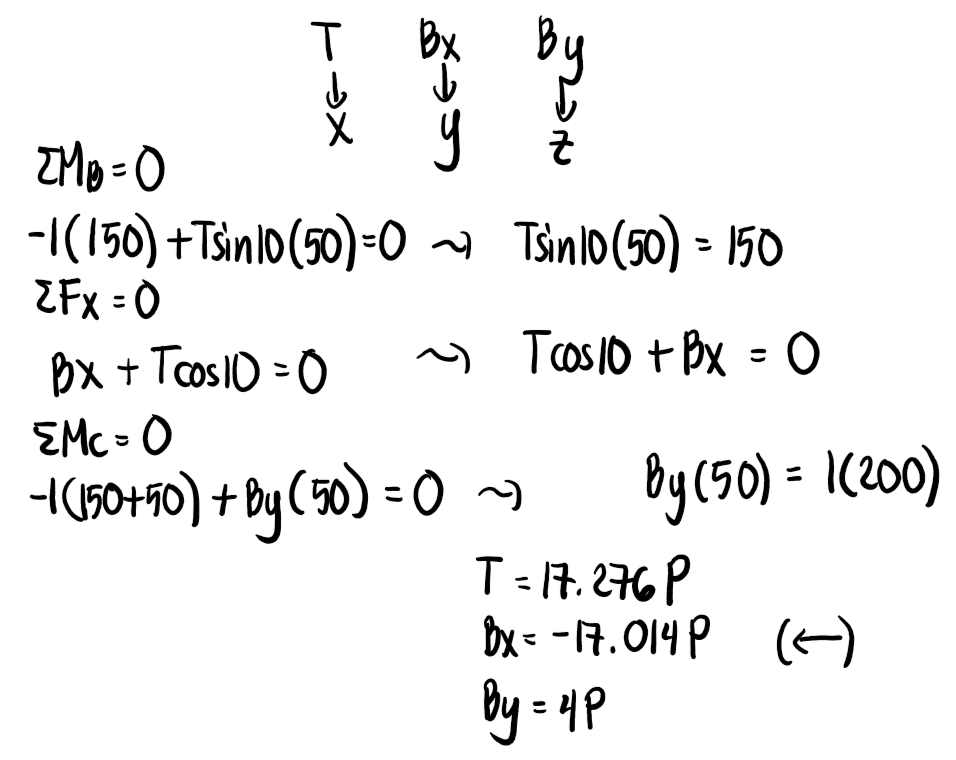 T Bx By
↓ ↓ ↓
x y z
ΣMB = 0
-1(150) + Tsin10(50) = 0 ⤳ Tsin10(50) = 150
ΣFx = 0
Bx + Tcos10 = 0 ⤳ Tcos10 + Bx = 0
ΣMc = 0
-1(150+50) + By(50) = 0 ⤳ By(50) = 1(200)
T = 17.276 P
Bx = -17.014 P (←)
By = 4P